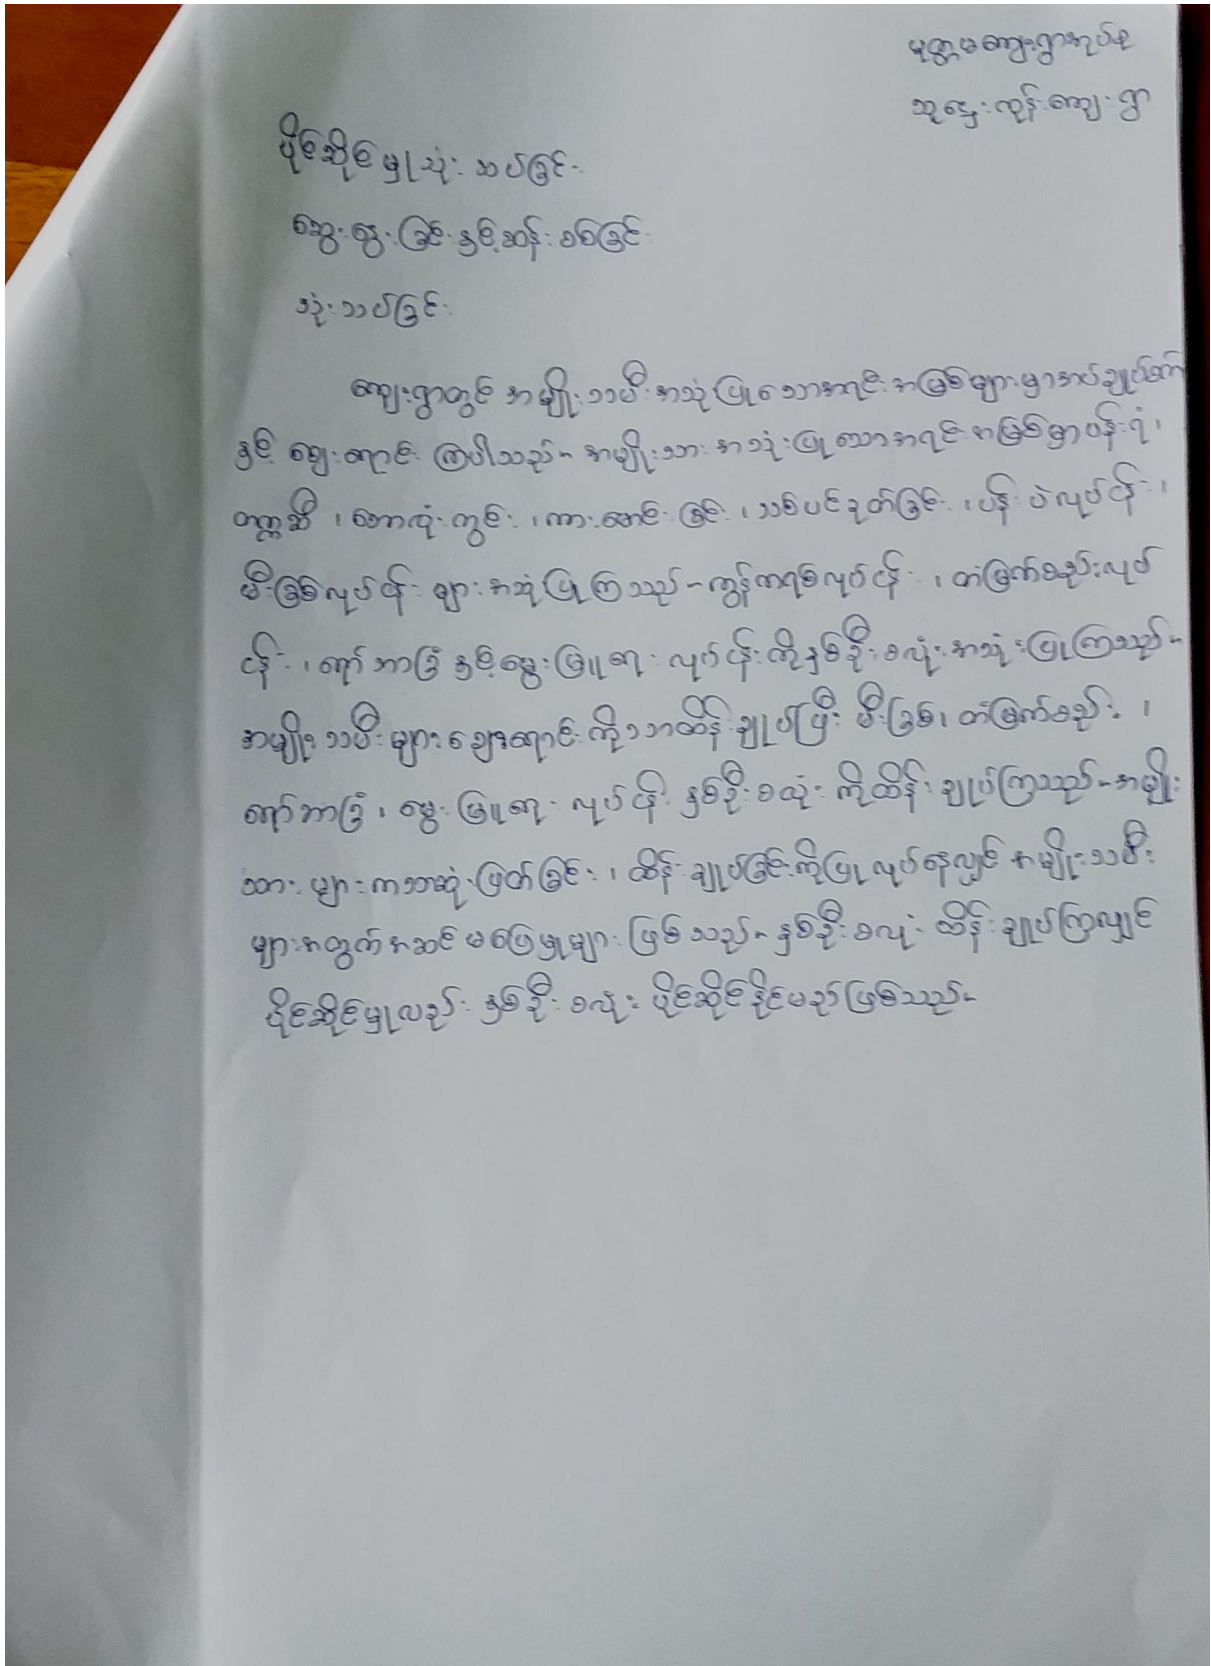 မုတ္တမကျေးရွာအုပ်စု
သူဌေးကုန်းကျေးရွာ
ပိုင်ဆိုင်မှုသုံးသပ်ခြင်း
ဆွေးနွေးခြင်းနှင့်ဆန်းစစ်ခြင်း
သုံးသပ်ခြင်း
ကျေးရွာတွင် အမျိုးသမီးအသုံပြုသောအရင်းအမြစ်များမှာအပ်ချုပ်စက်
နှင့် ဈေးရောင်းကြပါသည်။ အမျိုးသားအသုံးပြုသောအရင်းအမြစ်မှာပန်းရံ၊
တက္ကဆီ၊ ဘောလုံးကွင်း၊ ကားမောင်းခြင်း၊ သစ်ပင်ခုတ်ခြင်း၊ ပန်းပဲလုပ်ငန်း၊
မီးခြစ်လုပ်ငန်းများအသုံပြုကြသည်။ ကွန်ကရစ်လုပ်ငန်း၊ တံမြက်စည်းလုပ်
ငန်း၊ ရော်ဘာခြံနှင့်မွေးမြူရေးလုပ်ငန်းကိုနှစ်ဦးစလုံးအသုံးပြုကြသည်။
အမျိုးသမီးများဈေးရောင်းကိုသာထိန်းချုပ်ပြီး မီးခြစ်၊ တံမြက်စည်း၊
ရော်ဘာခြံ၊ မွေးမြူရေးလုပ်ငန်းနှစ်ဦးစလုံးကိုထိန်းချုပ်ကြသည်။ အမျိုး
သားများကသာဆုံးဖြတ်ခြင်း၊ ထိန်းချုပ်ခြင်းကိုပြုလုပ်နေလျှင်အမျိုးသမီး
များအတွက်အဆင်မပြေမှုများဖြစ်သည်။ နှစ်ဦးစလုံးထိန်းချုပ်ကြလျှင်
ပိုင်ဆိုင်မှုလည်းနှစ်ဦးစလုံးပိုင်ဆိုင်နိုင်မည်ဖြစ်သည်။